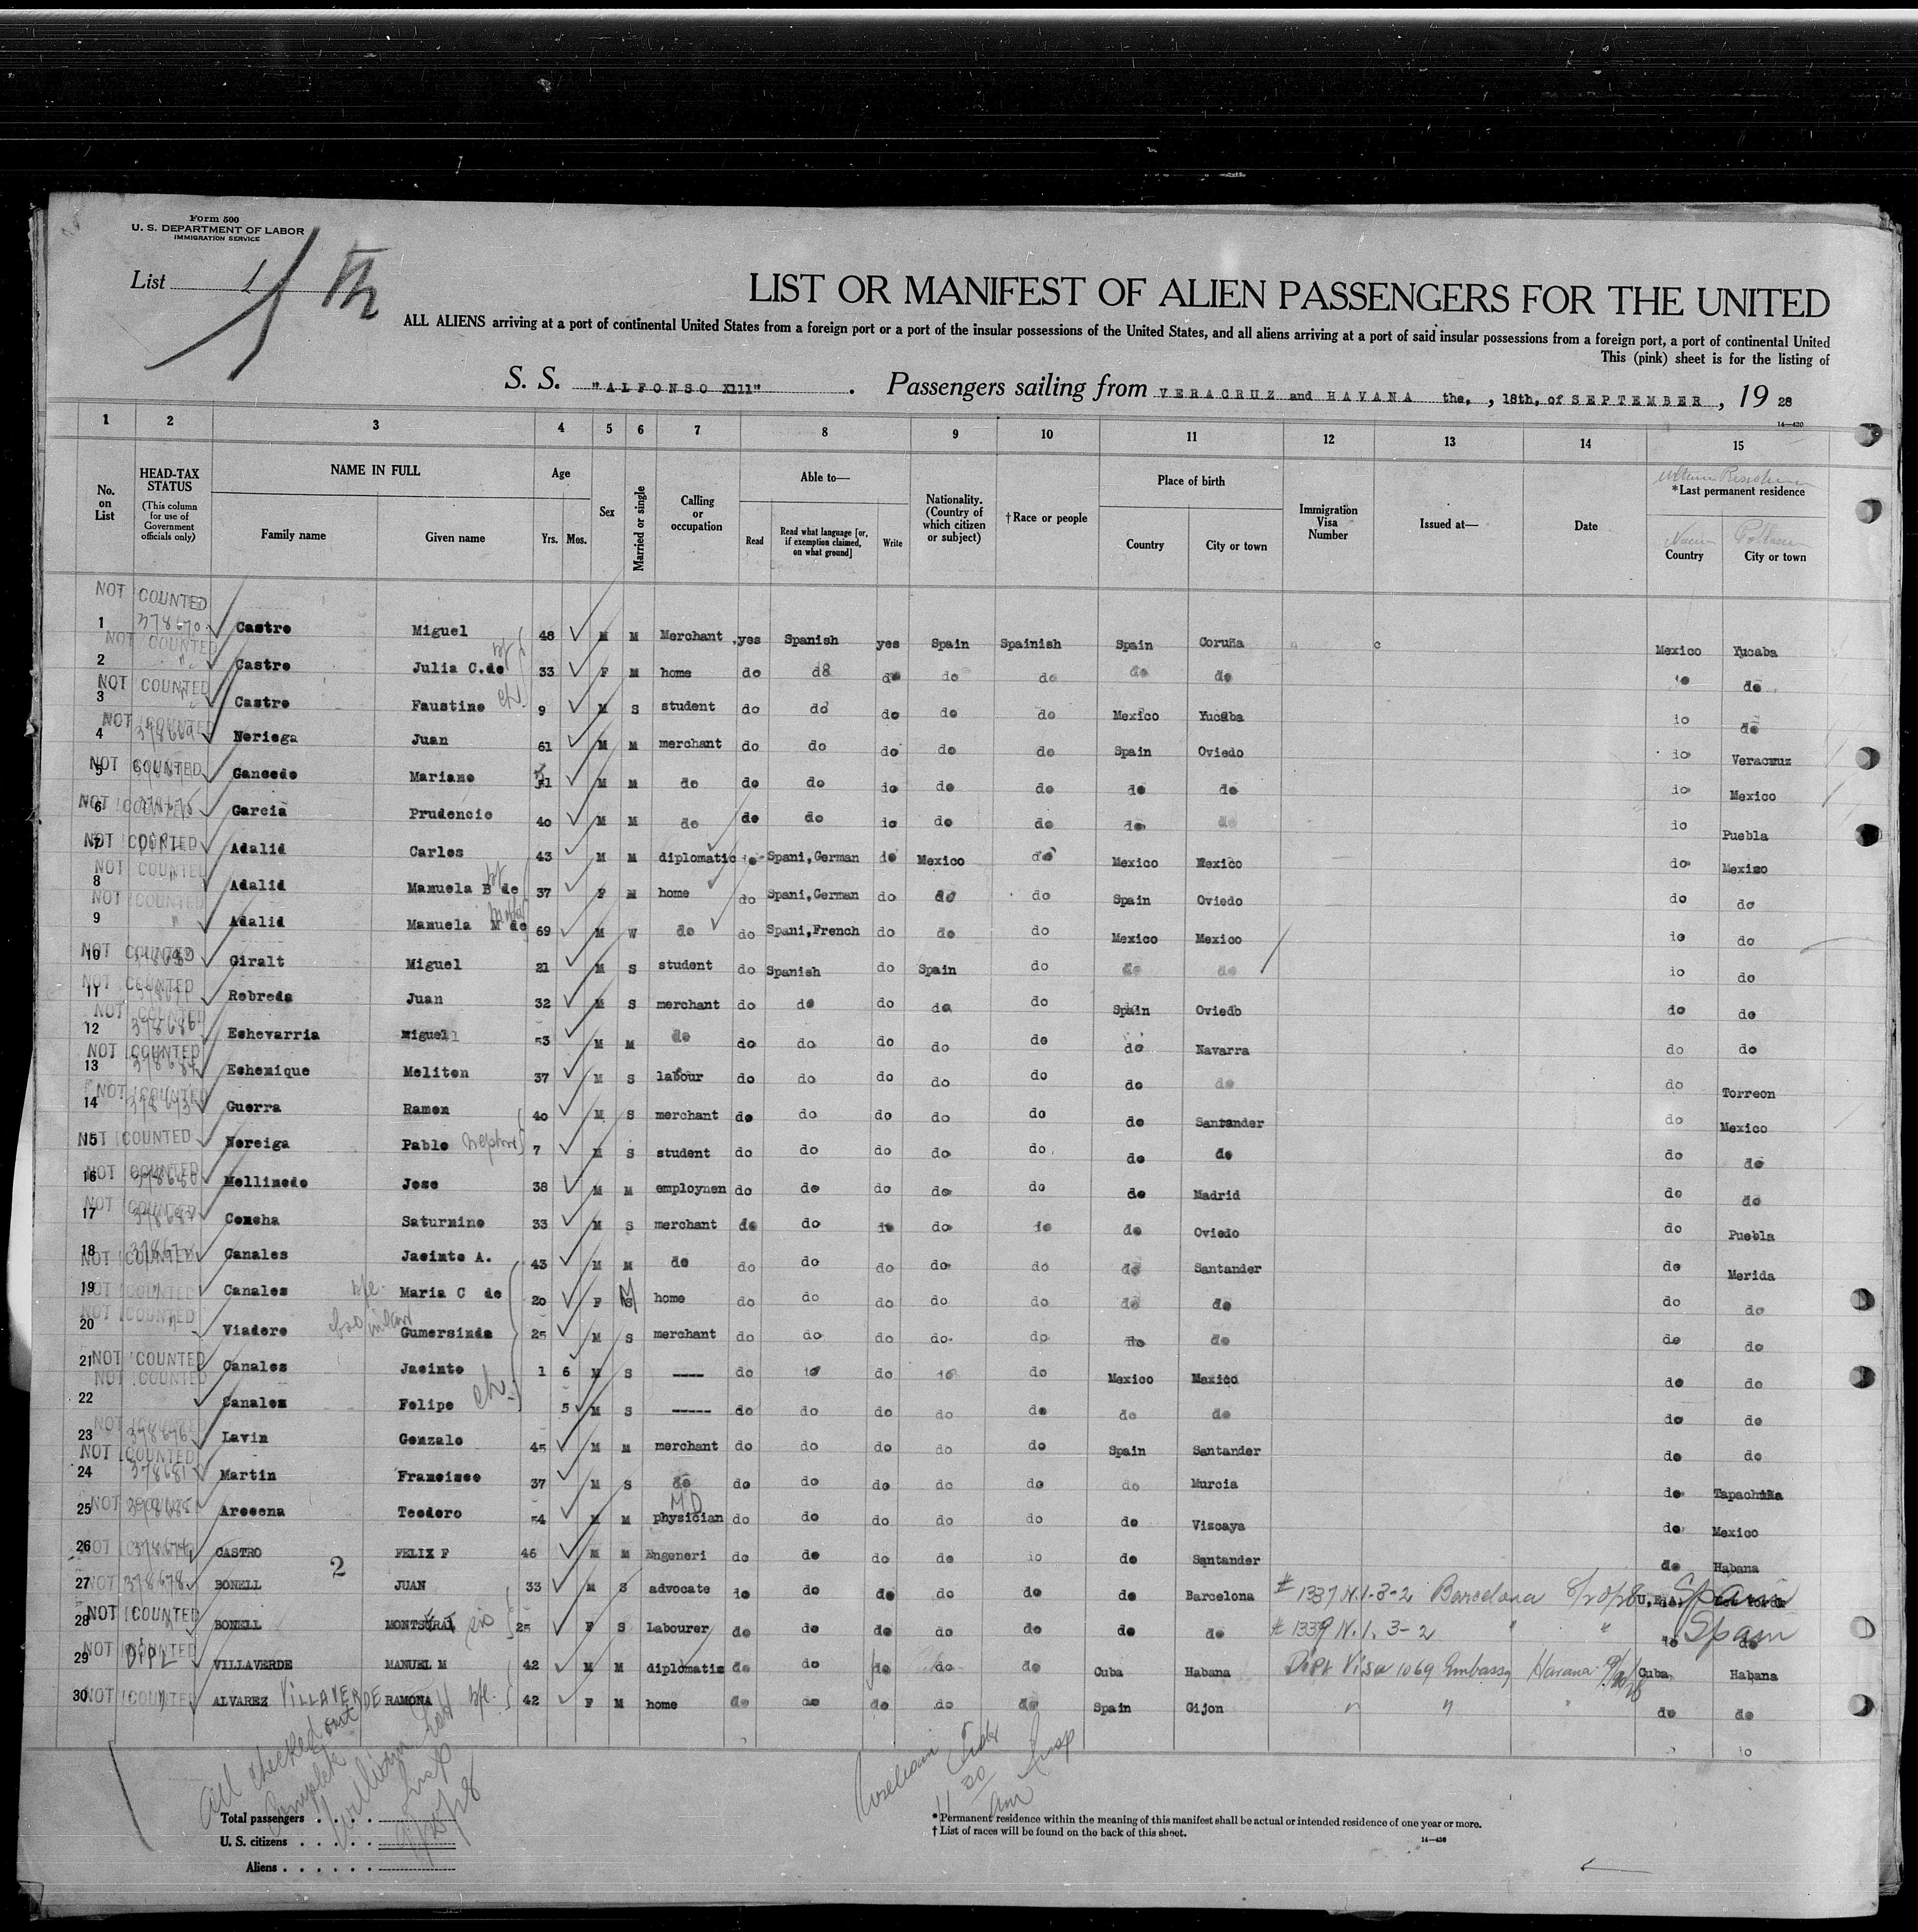 Form 500
U. S. DEPARTMENT OF LABOR
IMMIGRATION SERVICE
List 1
LIST OR MANIFEST OF ALIEN PASSENGERS FOR THE UNITED
ALL ALIENS arriving at a port of continental United States from a foreign port or a port of the insular possessions of the United States, and all aliens arriving at a port of said insular possessions from a foreign port, a port of continental United
This (pink) sheet is for the listing of
S. S. "ALFONSO X111". Passengers sailing from VERACRUZ and HAVANA the, , 18th, of SEPTEMBER, 19 28
14—430
1 2 3 4 5 6 7 8 9 10 11 12 13 14 15
No. on List
HEAD-TAX STATUS (This column for use of Government officials only)
NAME IN FULL
Family name
Given name
Age
Yrs. Mos.
Sex
Married or single
Calling or occupation
Able to—
Read
Read what language [or, if exemption claimed, on what ground]
Write
Nationality. (Country of which citizen or subject)
†Race or people
Place of birth
Country
City or town
Immigration Visa Number
Issued at—
Date
*Last permanent residence
Country
City or town
NOT COUNTED
1 378670 Castro Miguel 48 M M Merchant yes Spanish yes Spain Spainish Spain Coruña Mexico Yucaba
NOT COUNTED
2 " Castro Julia C.de wf 33 F M home do do do do do do do do do
NOT COUNTED
3 Castro Faustino ch. 9 M S student do do do do do Mexico Yucaba do do
NOT COUNTED
4 Noriega Juan 61 M M merchant do do do do do Spain Oviedo do Veracruz
NOT COUNTED
5 Gancedo Mariano 51 M M do do do do do do do do do Mexico
NOT COUNTED
6 Garcia Prudencio 40 M M do do do do do do do do do Puebla
NOT COUNTED
7 Adalid Carlos 43 M M diplomatic do Spani,German do Mexico do Mexico Mexico do Mexico
NOT COUNTED
8 " Adalid Manuela B de wf 37 F M home do Spani,German do do do Spain Oviedo do do
NOT COUNTED
9 " Adalid Manuela M de 69 M W do do Spani,French do do do Mexico Mexico do do
NOT COUNTED
10 Giralt Miguel 21 M S student do Spanish do Spain do do do do do
NOT COUNTED
11 Robreda Juan 32 M S merchant do do do do do Spain Oviedo do do
NOT COUNTED
12 378686 Echevarria Miguel 53 M M do do do do do do do Navarra do do
NOT COUNTED
13 Echenique Meliton 37 M S labour do do do do do do do do Torreon
NOT COUNTED
14 Guerra Ramon 40 M S merchant do do do do do do Santander do Mexico
NOT COUNTED
15 Noreiga Pablo nephew 7 M S student do do do do do do do do do
NOT COUNTED
16 378680 Mollinedo Jose 38 M M employnen do do do do do do Madrid do do
NOT COUNTED
17 Concha Saturnino 33 M S merchant do do do do do do Oviedo do Puebla
18 Canales Jacinto A. 43 M M do do do do do do do Santander do Merida
NOT COUNTED
19 Canales wfe. Maria C de 20 F M home do do do do do do do do do
NOT COUNTED
20 Viadero bro in law Gumersindo 25 M S merchant do do do do do do do do do
NOT COUNTED
21 Canales Jacinto 1 6 M S ---- do do do do do Mexico Mexico do do
NOT COUNTED
22 Canales Felipe ch. 5 M S ----- do do do do do do do do do
NOT COUNTED
23 378676 Lavin Gonzalo 45 M M merchant do do do do do Spain Santander do do
NOT COUNTED
24 378681 Martin Francisco 37 M S do do do do do do do Murcia do Tapachula
NOT COUNTED
25 Arocena Teodoro 54 M M M.D physician do do do do do do Vizcaya do Mexico
NOT
26 CASTRO FELIX F 46 M M Engeneri do do do do do do Santander do Habana
2
NOT
27 378678 BONELL JUAN 33 M S advocate do do do do do do Barcelona # 1337 N.1-3-2 Barcelona 8/20/28 U.S.A. Spain
NOT COUNTED
28 BONELL MONTSERAT sis 25 F S Labourer do do do do do do do # 1339 N.1. 3-2 " " do Spain
NOT COUNTED
29 DIPL VILLAVERDE MANUEL M 42 M M diplomatic do do do do do Cuba Habana Dipl Visa 1069 Embassy Havana Cuba Habana
NOT COUNTED
30 ALVAREZ VILLAVERDE RAMONA wfe. 42 F M home do do do do do Spain Gijon " " " do do
do
All checked out
Complete
William
Insp
Total passengers
U. S. citizens
Aliens
*Permanent residence within the meaning of this manifest shall be actual or intended residence of one year or more.
†List of races will be found on the back of this sheet.
14—430